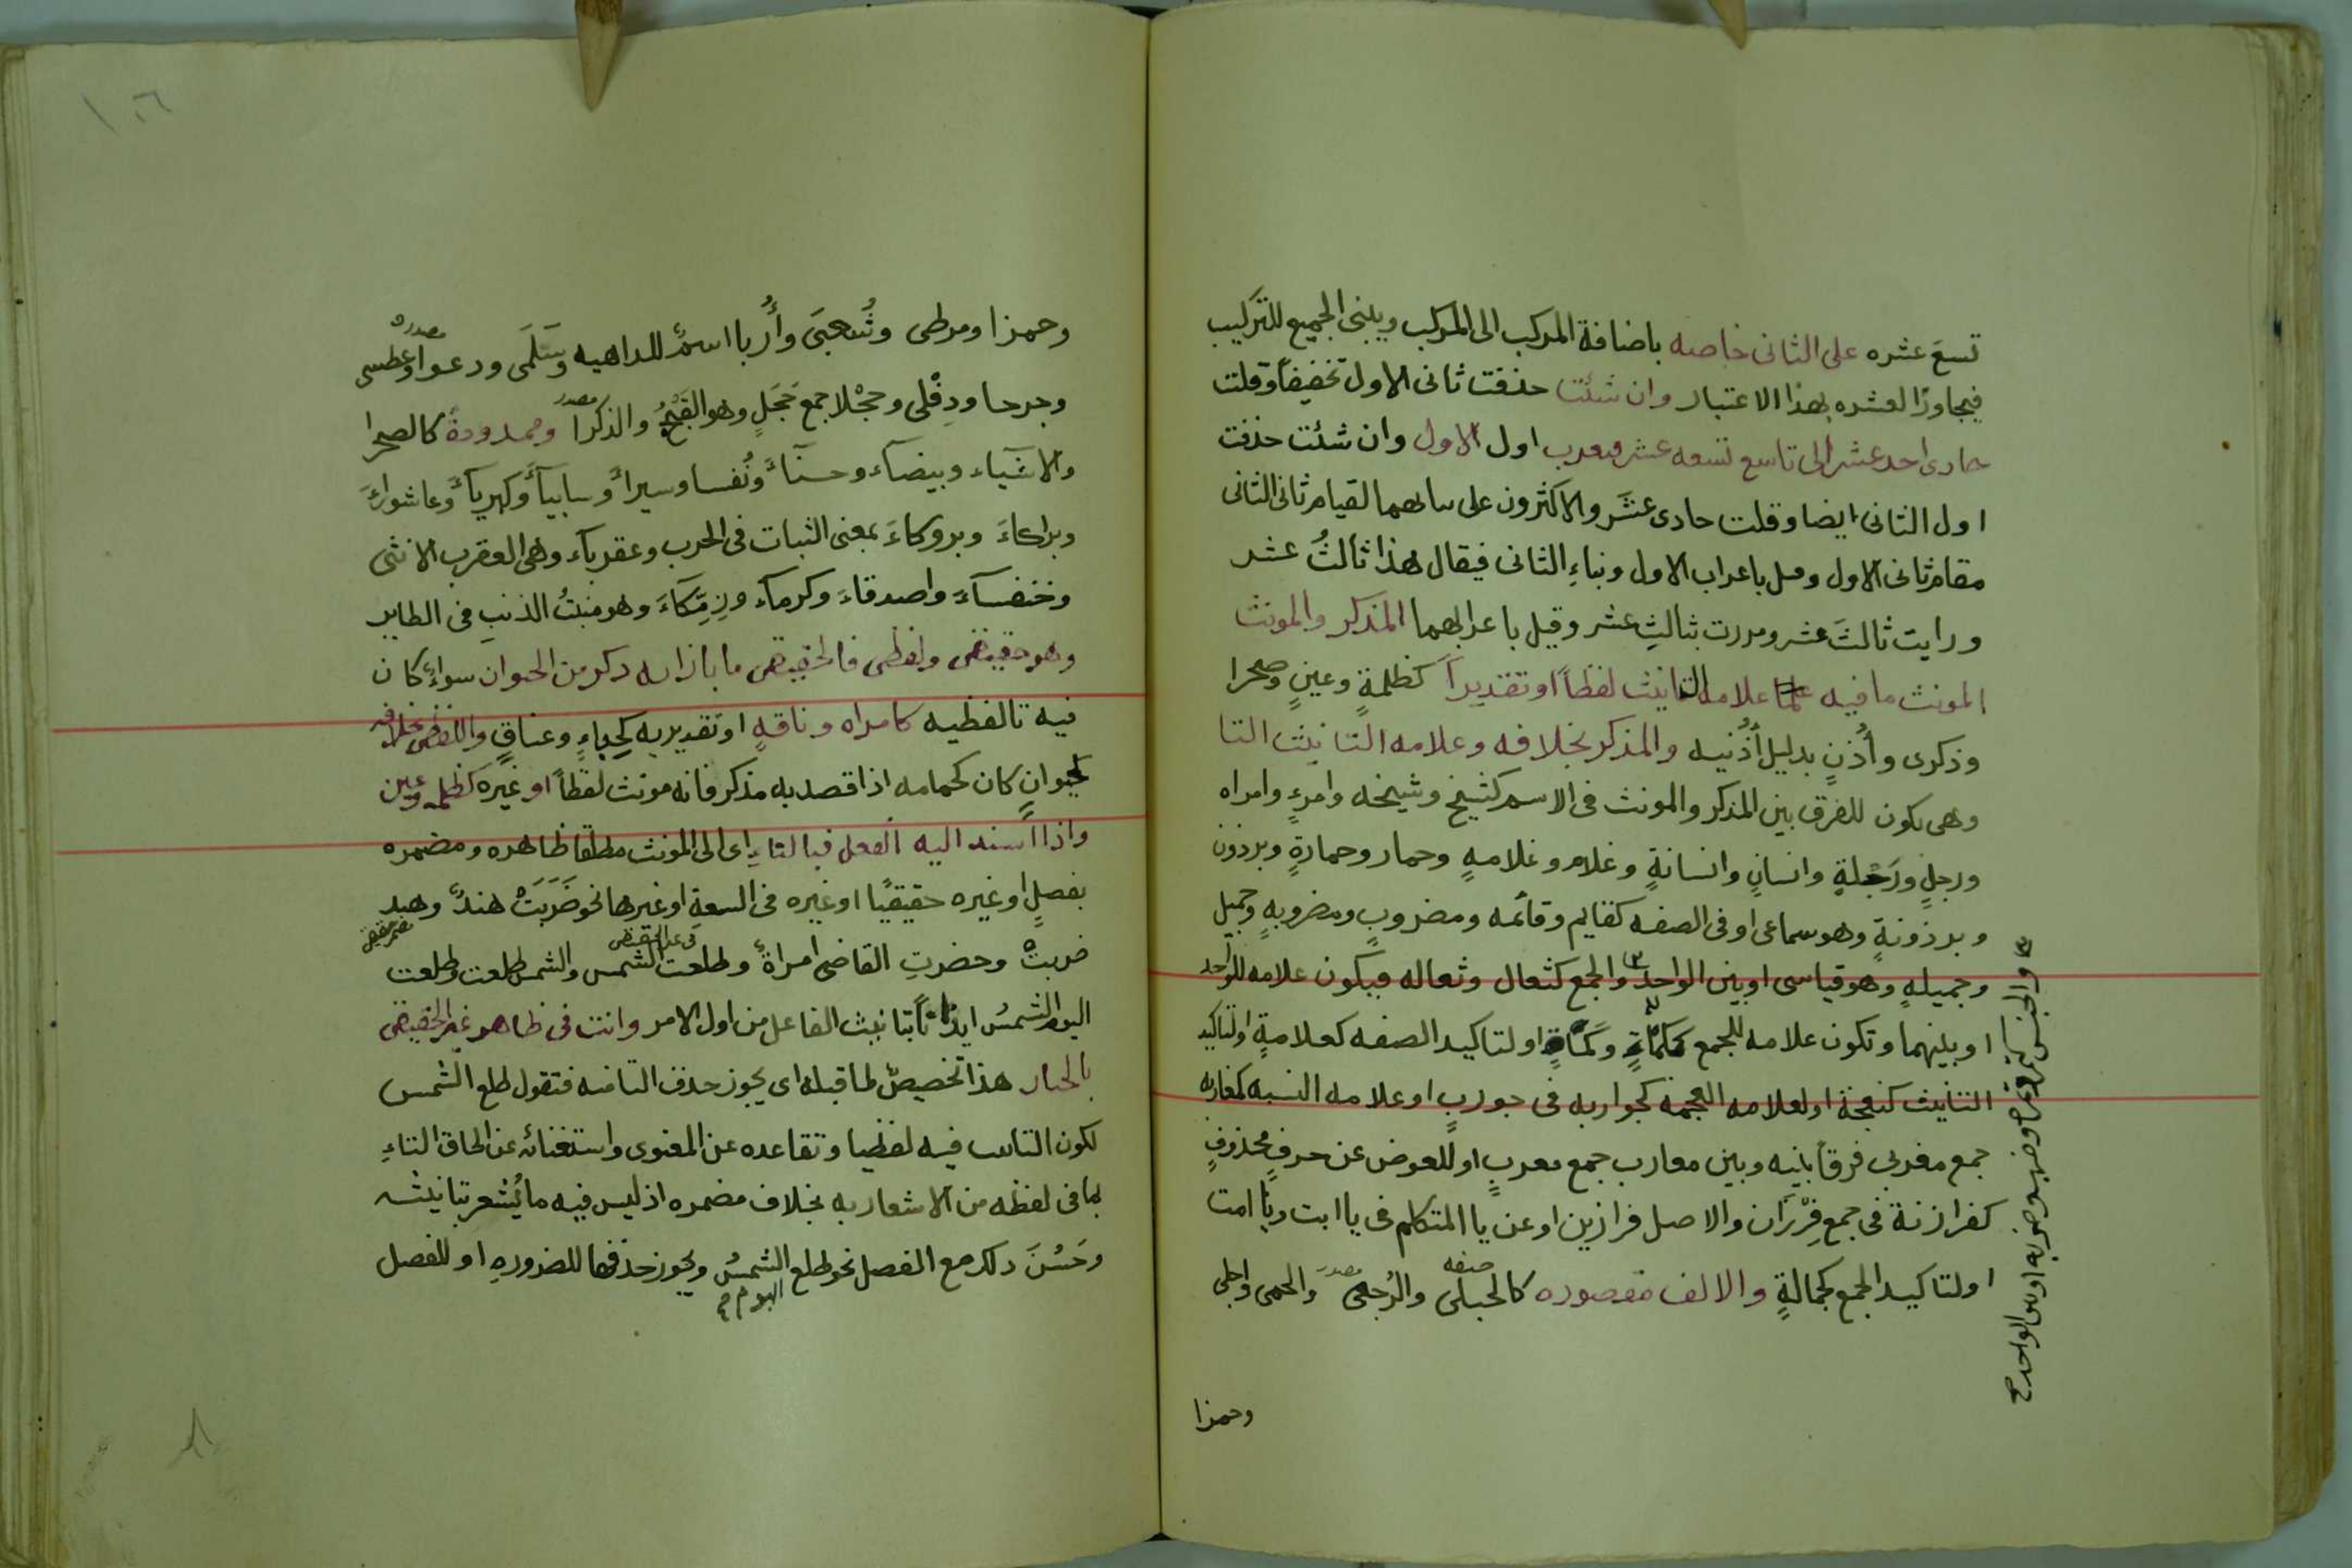 تسعَ عشره على الثانى خاصه باضافة المركب الى المركب ويبنى الجميع للتركيب
فيجاوزا لعشره بهذا الاعتبار وان شئت حذفت ثانى الاول تخفيفاً وقلت
حادى احد عشر الى تاسع تسعه عشر فيعرب اول الاول وان شئت حذفت
اول الثانى ايضا وقلت حادى عشَر والاكثرون على بنائهما لقيام ثانى الثانى
مقام ثانى الاول وقيل باعراب الاول وبناءِ الثانى فيقال هذا ثالثُ عشر
ورايت ثالثَ عشر ومررت بثالثِ عشر وقيل باعرابهما المذكر والمونث
المونث ما فيه علامه التانيث لفظاً او تقديراً كظلمةٍ وعينٍ وصحرا
وذكرى وأُذنٍ بدليل أُذُنيه والمذكر بخلافه وعلامه التانيث التا
وهى تكون للفرق بين المذكر والمونث فى الاسم كشيخ وشيخه وامرءٍ وامراه
ورجلٍ ورَجُلةٍ وانسانٍ وانسانةٍ وغلام وغلامهٍ وحمار وحمارةٍ وبرذون
وبرذونةٍ وهو سماعى او فى الصفه كقايم وقائمه ومضروبٍ ومضروبهٍ وجميل
وجميلهٍ وهو قياسى او بين الواحد والجمع كثعال وثعاله فيكون علامه للواحد
او بينهما وتكون علامه للجمع ككمأةٍ وكمأةٍ او لتاكيد الصفه كعلامةٍ او لتاكيد
التانيث كنعجة او لعلامه العجمه كجواربه فى جوربٍ او علامه النسبه كمغاربه
جمع مغربى فرقاً بينه وبين مغارب جمع مغربٍ او للعوض عن حرفٍ محذوفٍ
كفرازنة فى جمع فِرْزَان والاصل فرازين او عن يا المتكلم فى يا ابت ويا امت
او لتاكيد الجمع كجمالةٍ والالف مقصوره كالحبلى والرُجعى والحمى واجلى
صفه
مصدر
وحمزا
وحمزا ومرطى وشُعبَى وأُربا اسمٌ للداهيه وسَلَمى ودعوا وعطسى
مصدر
وجرحا ودِفْلى وحجْلا جمع حَجَلٍ وهو القَبْجُ والذكرا وممدودةً كالصحرا
مصدر
والاشياء وبيضاَء وحسنَاَّ ونُفسا وسيراً وسابيآَ وكبرياَّ وعاشوراَءَ
وبراكاءَ وبروكاءَ بمعنى الثبات فى الحرب وعقرباَء وهى العقرب الانثى
وخنفساءَ واصدقاءَ وكرماَء وزِمِكَّاءَ وهو منبتُ الذنبِ فى الطاير
وهو حقيقى ولفظى فالحقيقى ما بازايه ذكر من الحيوان سواءٌ كان
فيه تا لفظيه كامراه وناقهٍ او تقديريه كحِباءٍ وعناقٍ واللفظى بخلافه
لحيوانٍ كان كحمامه اذا قصد به مذكر فانه مونث لفظاً او غيره كظلمه وعين
واذا أُسند اليه الفعل فبالتاءِ اى الى المونث مطلقا ظاهره ومضمره
بفصلٍ او غيره حقيقيًا او غيره فى السعةِ او غيرها نحو ضَرَبَتْ هندٌ وهند
ضربتْ وحضرتِ القاضى امراةٌ وطلعت الشمس والشمس طلعت وطلعت
اليوم الشمسُ ايذاناً بتانيث الفاعل من اول الامر وانت فى ظاهر غير الحقيقى
بالخيار هذا تخصيصٌ لما قبله اى يجوز حذف التا منه فتقول طلع الشمس
لكون التانيث فيه لفظيا وتقاعده عن المعنوى واستغنائه عن الحاق التاءِ
لما فى لفظه من الاشعار به بخلاف مضمره اذ ليس فيه ما يُشعر بتانيثه
وحَسُنَ ذلك مع الفصل نحو طلع الشمسُ ويجوز حذفها للضروره او للفصل
اليوم